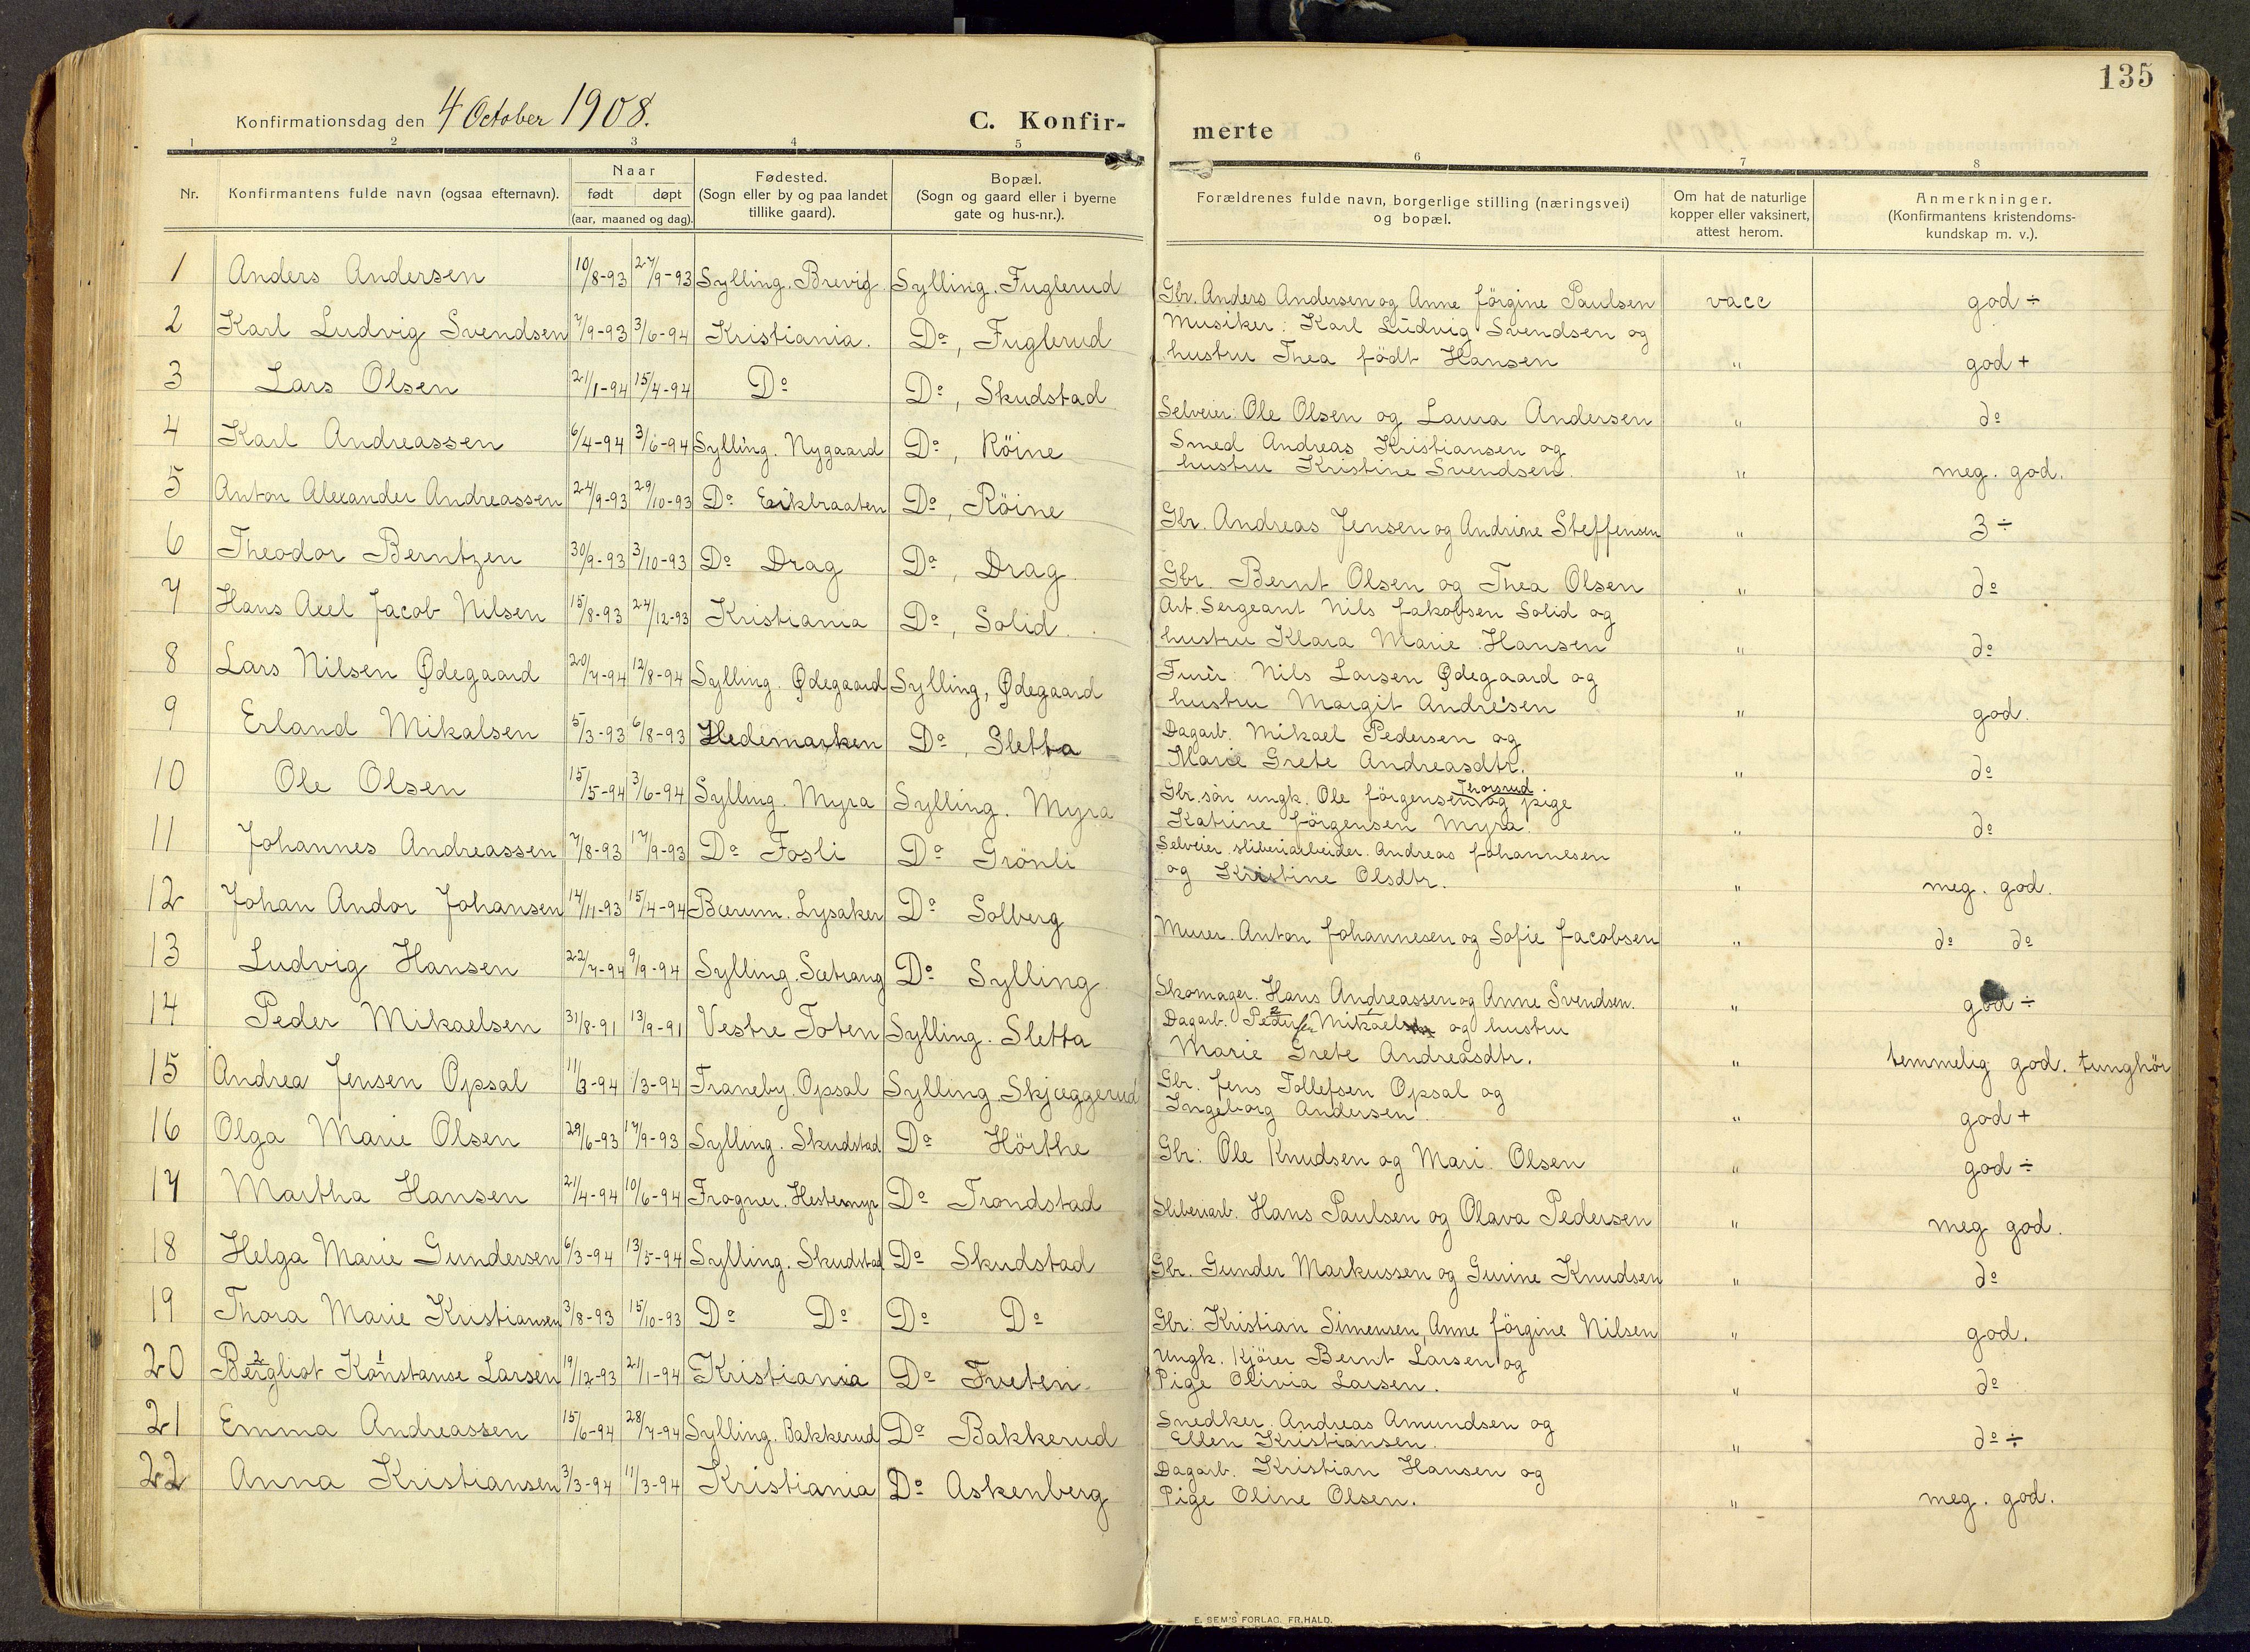 135
Konfirmationsdag den 4 October 1908.
C. Konfir-
merte
1 2 3 4 5 6 7 8
Nr.
Konfirmantens fulde navn (ogsaa efternavn).
Naar
født døpt
(aar, maaned og dag).
Fødested.
(Sogn eller by og paa landet
tillike gaard).
Bopæl.
(Sogn og gaard eller i byerne
gate og hus-nr.).
Forældrenes fulde navn, borgerlige stilling (næringsvei)
og bopæl.
Om hat de naturlige
kopper eller vaksinert,
attest herom.
Anmerkninger.
(Konfirmantens kristendoms-
kundskap m. v.).
1 Anders Andersen 10/8-93 27/9-93 Sylling. Brevig Sylling. Fuglerud
Gbr. Anders Andersen og Anne Jörgine Paulsen vacc god ÷
2 Karl Ludvig Svendsen 7/9-93 3/6-94 Kristiania. Do, Fuglerud
Musiker: Karl Ludvig Svendsen og
hustru Thea födt Hansen " god +
3 Lars Olsen 21/1-94 15/4-94 Do Do, Skudstad
Selveier: Ole Olsen og Laura Andersen " do
4 Karl Andreassen 6/4-94 3/6-94 Sylling. Nygaard Do, Röine
Smed Andreas Kristiansen og
hustru Kristine Svendsen. " meg. god.
5 Anton Alexander Andreassen 24/9-93 29/10-93 Do Eikbraaten Do, Röine
Gbr. Andreas Jensen og Andrine Steffensen " 3 ÷
6 Theodor Berntzen 30/9-93 3/10-93 Do Drag Do, Drag
Gbr. Bernt Olsen og Thea Olsen " do
7 Hans Axel Jacob Nilsen 15/8-93 24/12-93 Kristiania Do, Solid.
Art. Sergeant Nils Jakobsen Solid og
hustru Klara Marie Hansen " do
8 Lars Nilsen Ødegaard 20/7-94 12/8-94 Sylling. Ødegaard Sylling, Ødegaard
Furér: Nils Larsen Ødegaard og
hustru Margit Andrésen " god.
9 Erland Mikalsen 5/3-93 6/8-93 Hedemarken Do, Sletta
Dagarb. Mikael Pedersen og
Marie Grete Andreasdtr. " do
10 Ole Olsen 15/5-94 3/6-94 Sylling. Myra Sylling. Myra
Thorsrud.
Gbr. sön ungk. Ole Jörgensen og pige
Katrine Jörgensen Myra. " do
11 Johannes Andreassen 7/8-93 17/9-93 Do Fosli Do Grönli
Selveier sliberiarbeider. Andreas Johannesen
og Kristine Olsdtr. " meg. god.
12 Johan Andor Johansen 14/11-93 15/4-94 Bærum. Lysaker Do Solberg
Murer. Anton Johannesen og Sofie Jacobsen " do do
13 Ludvig Hansen 22/7-94 9/9-94 Sylling. Sætrang Do Sylling
Skomager. Hans Andreassen og Anne Svendsen. " god ÷
14 Peder Mikaelsen 31/8-91 13/9-91 Vestre Toten Sylling. Sletta
2 1
Dagarb. Pedersen Mikael og hustru
Marie Grete Andreasdtr. " temmelig god. tunghör
15 Andrea Jensen Opsal 11/3-94 1/3-94 Traneby. Opsal Sylling. Skjæggerud
Gbr. Jens Tollefsen Opsal og
Ingeborg Andersen. " god +
16 Olga Marie Olsen 29/6-93 17/9-93 Sylling. Skudstad Do Hörthe
Gbr: Ole Knudsen og Mari Olsen " god ÷
17 Martha Hansen 21/4-94 10/6-94 Frogner. Hestemyr Do Trondstad
Sliberiarb. Hans Paulsen og Olava Pedersen " meg god.
18 Helga Marie Gundersen 6/3-94 13/5-94 Sylling. Skudstad Do Skudstad
Gbr. Gunder Markussen og Gurine Knudsen " do
19 Thora Marie Kristiansen 3/8-93 15/10-93 Do Do Do Do
Gbr: Kristian Simensen, Anne Jörgine Nilsen " god.
2 1
20 Bergliot Konstanse Larsen 19/12-93 21/1-94 Kristiania Do Tveten.
Ungk. Kjörer Bernt Larsen og
Pige Olivia Larsen. " do
21 Emma Andreassen 15/6-94 28/7-94 Sylling. Bakkerud Do Bakkerud
Snedker. Andreas Amundsen og
Ellen Kristiansen. " do ÷
22 Anna Kristiansen 3/3-94 11/3-94 Kristiania Do Askenberg
Dagarb. Kristian Hansen og
Pige Oline Olsen. " meg. god.
E. SEM'S FORLAG, FR.HALD.